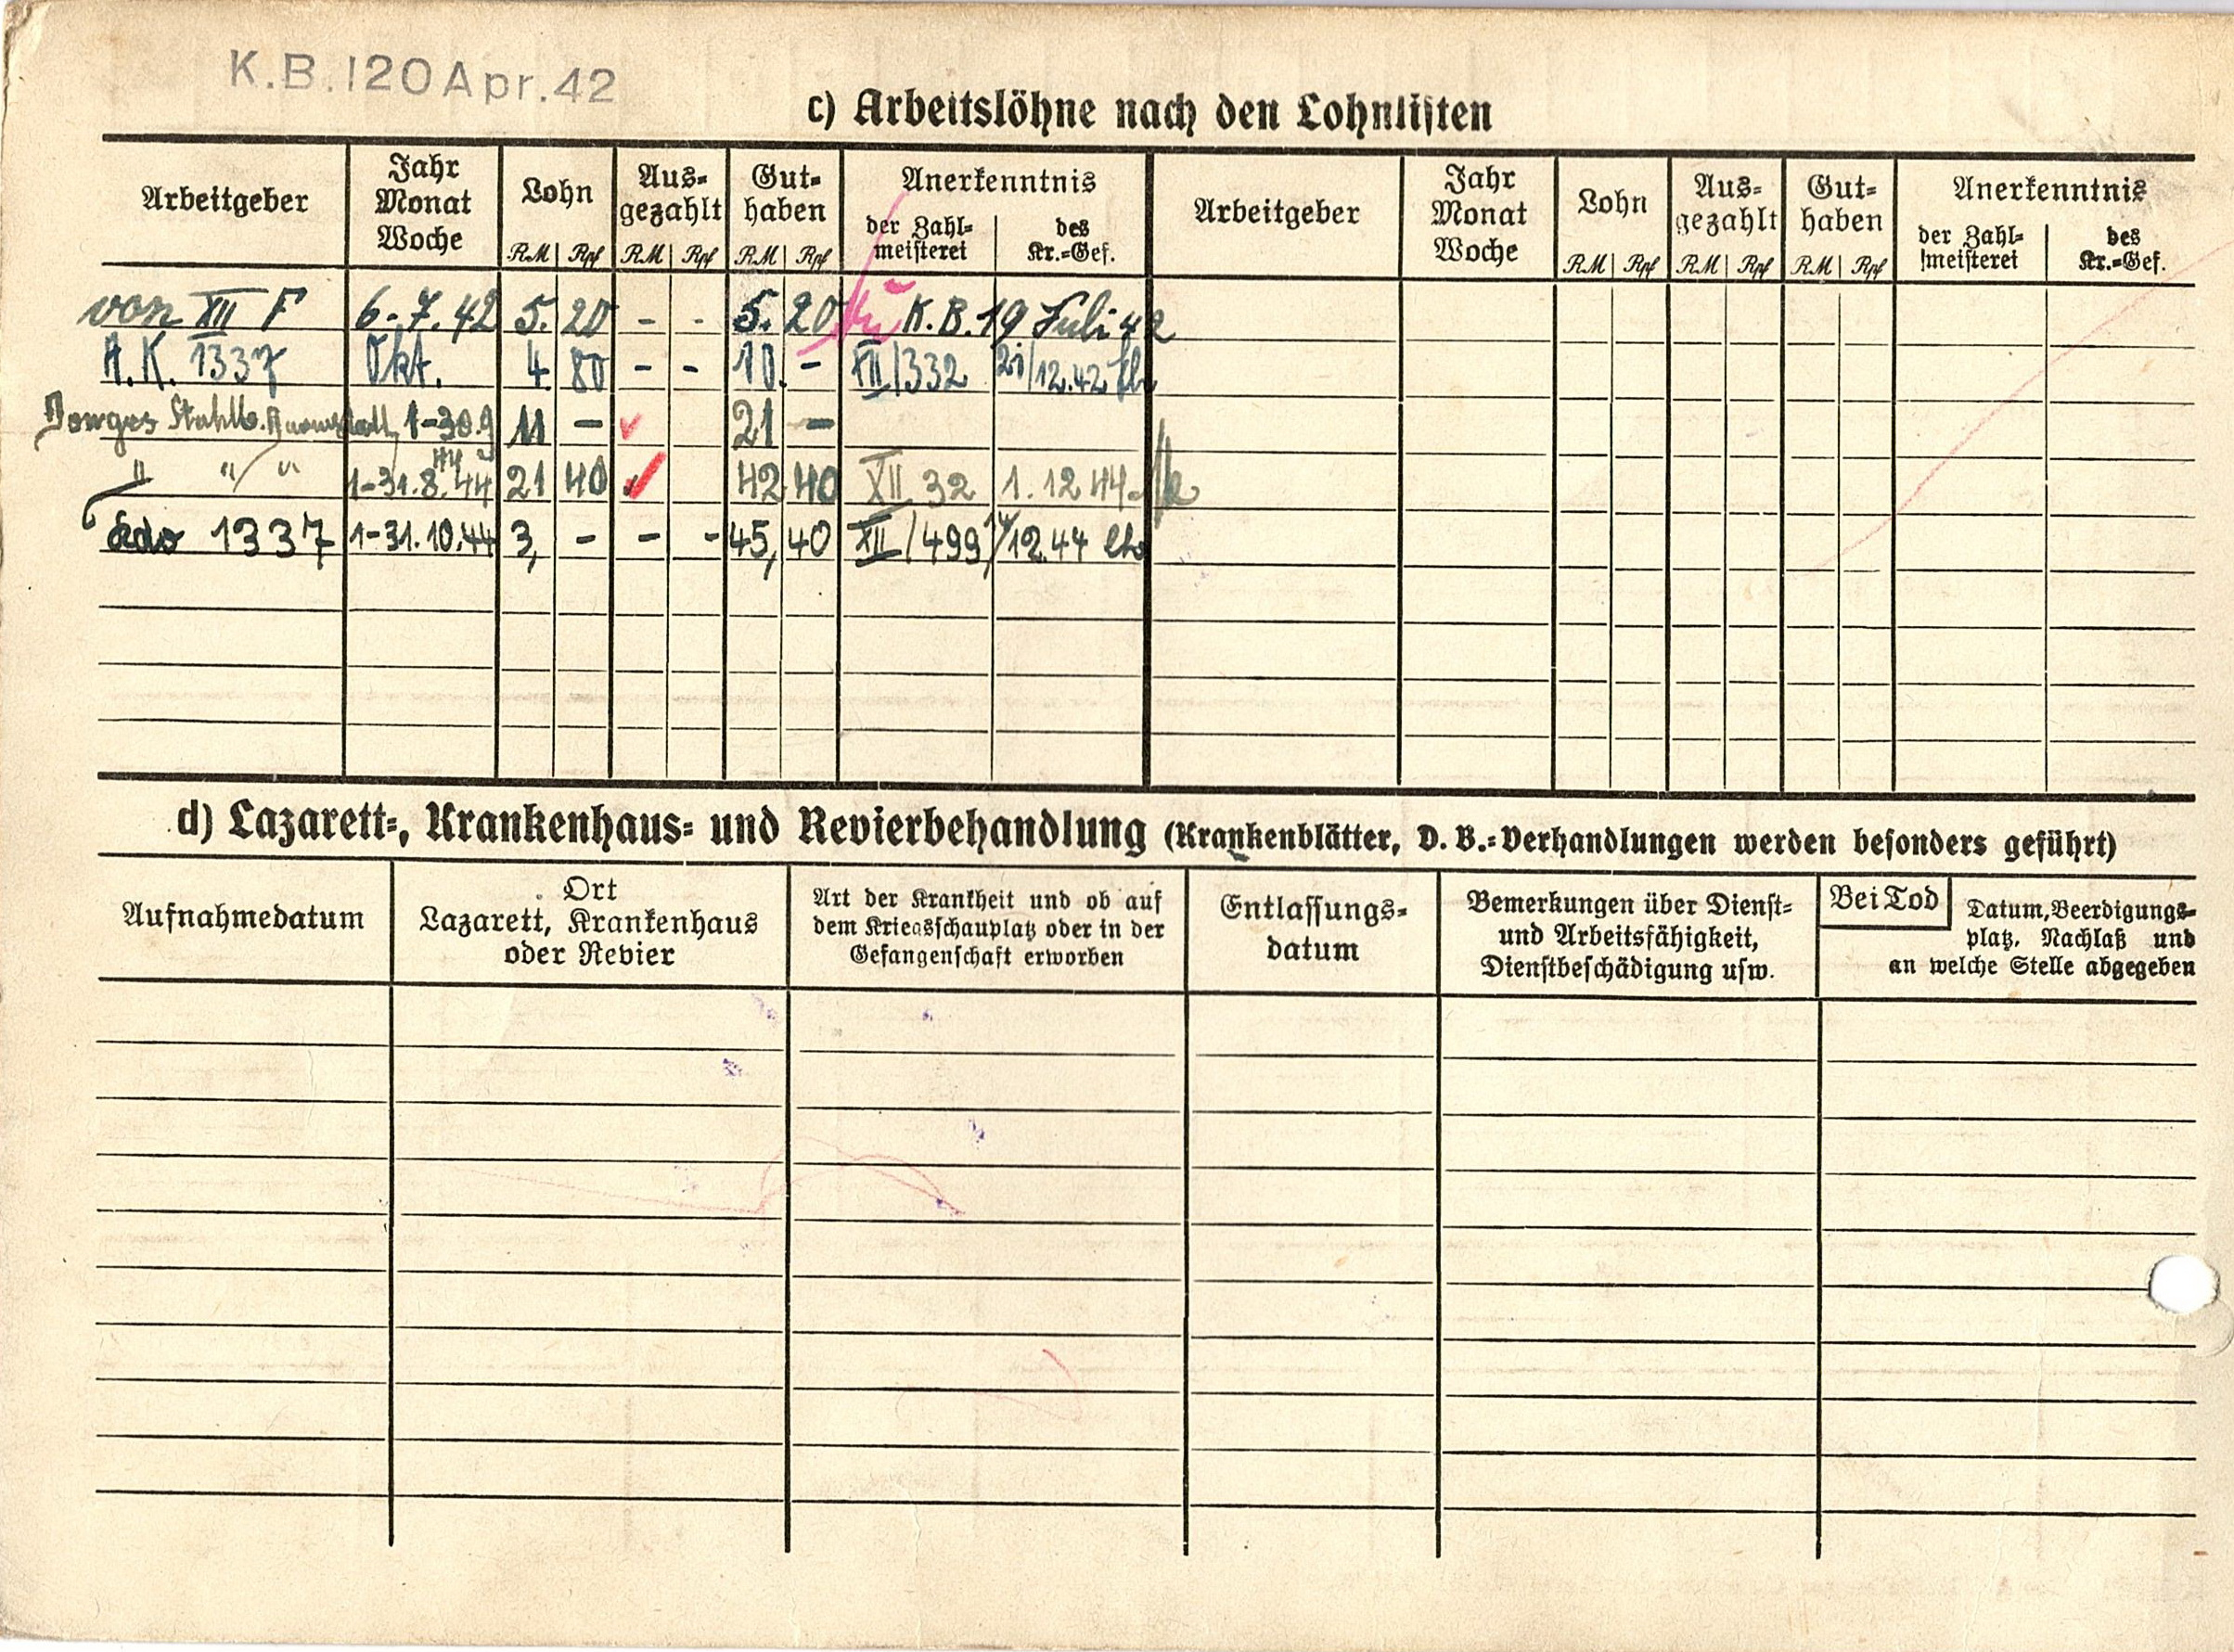 K.B.120Apr.42
c) Arbeitslöhne nach den Lohnlisten
Arbeitgeber Jahr Monat Woche Lohn Aus-gezahlt Gut-haben Anerkenntnis Arbeitgeber Jahr Monat Woche Lohn Aus-gezahlt Gut-haben Anerkenntnis
RM Rpf RM Rpf RM Rpf der Zahl-meisterei des Kr.-Gef. RM Rpf RM Rpf RM Rpf der Zahl-meisterei des Kr.-Gef.
von XII F 6.-7.42 5. 20 - - 5. 20 K.B.19 Juli 42
A.K. 1337 Okt. 4 80 - - 10. - XII/332 21/12.42
Stahlb. 1-30.9 44 11 - 21 -
" " " 1-31.8.44 21 40 42 40 XII 32 1.12 44.
Kdo 1337 1-31.10.44 3, - - - 45, 40 XII/499 14/12.44
d) Lazarett-, Krankenhaus- und Revierbehandlung (Krankenblätter, D. B.-Verhandlungen werden besonders geführt)
Aufnahmedatum
Ort
Lazarett, Krankenhaus
oder Revier
Art der Krankheit und ob auf
dem Kriegsschauplatz oder in der
Gefangenschaft erworben
Entlassungs-
datum
Bemerkungen über Dienst-
und Arbeitsfähigkeit,
Dienstbeschädigung usw.
Bei Tod
Datum, Beerdigungs-
platz, Nachlaß und
an welche Stelle abgegeben